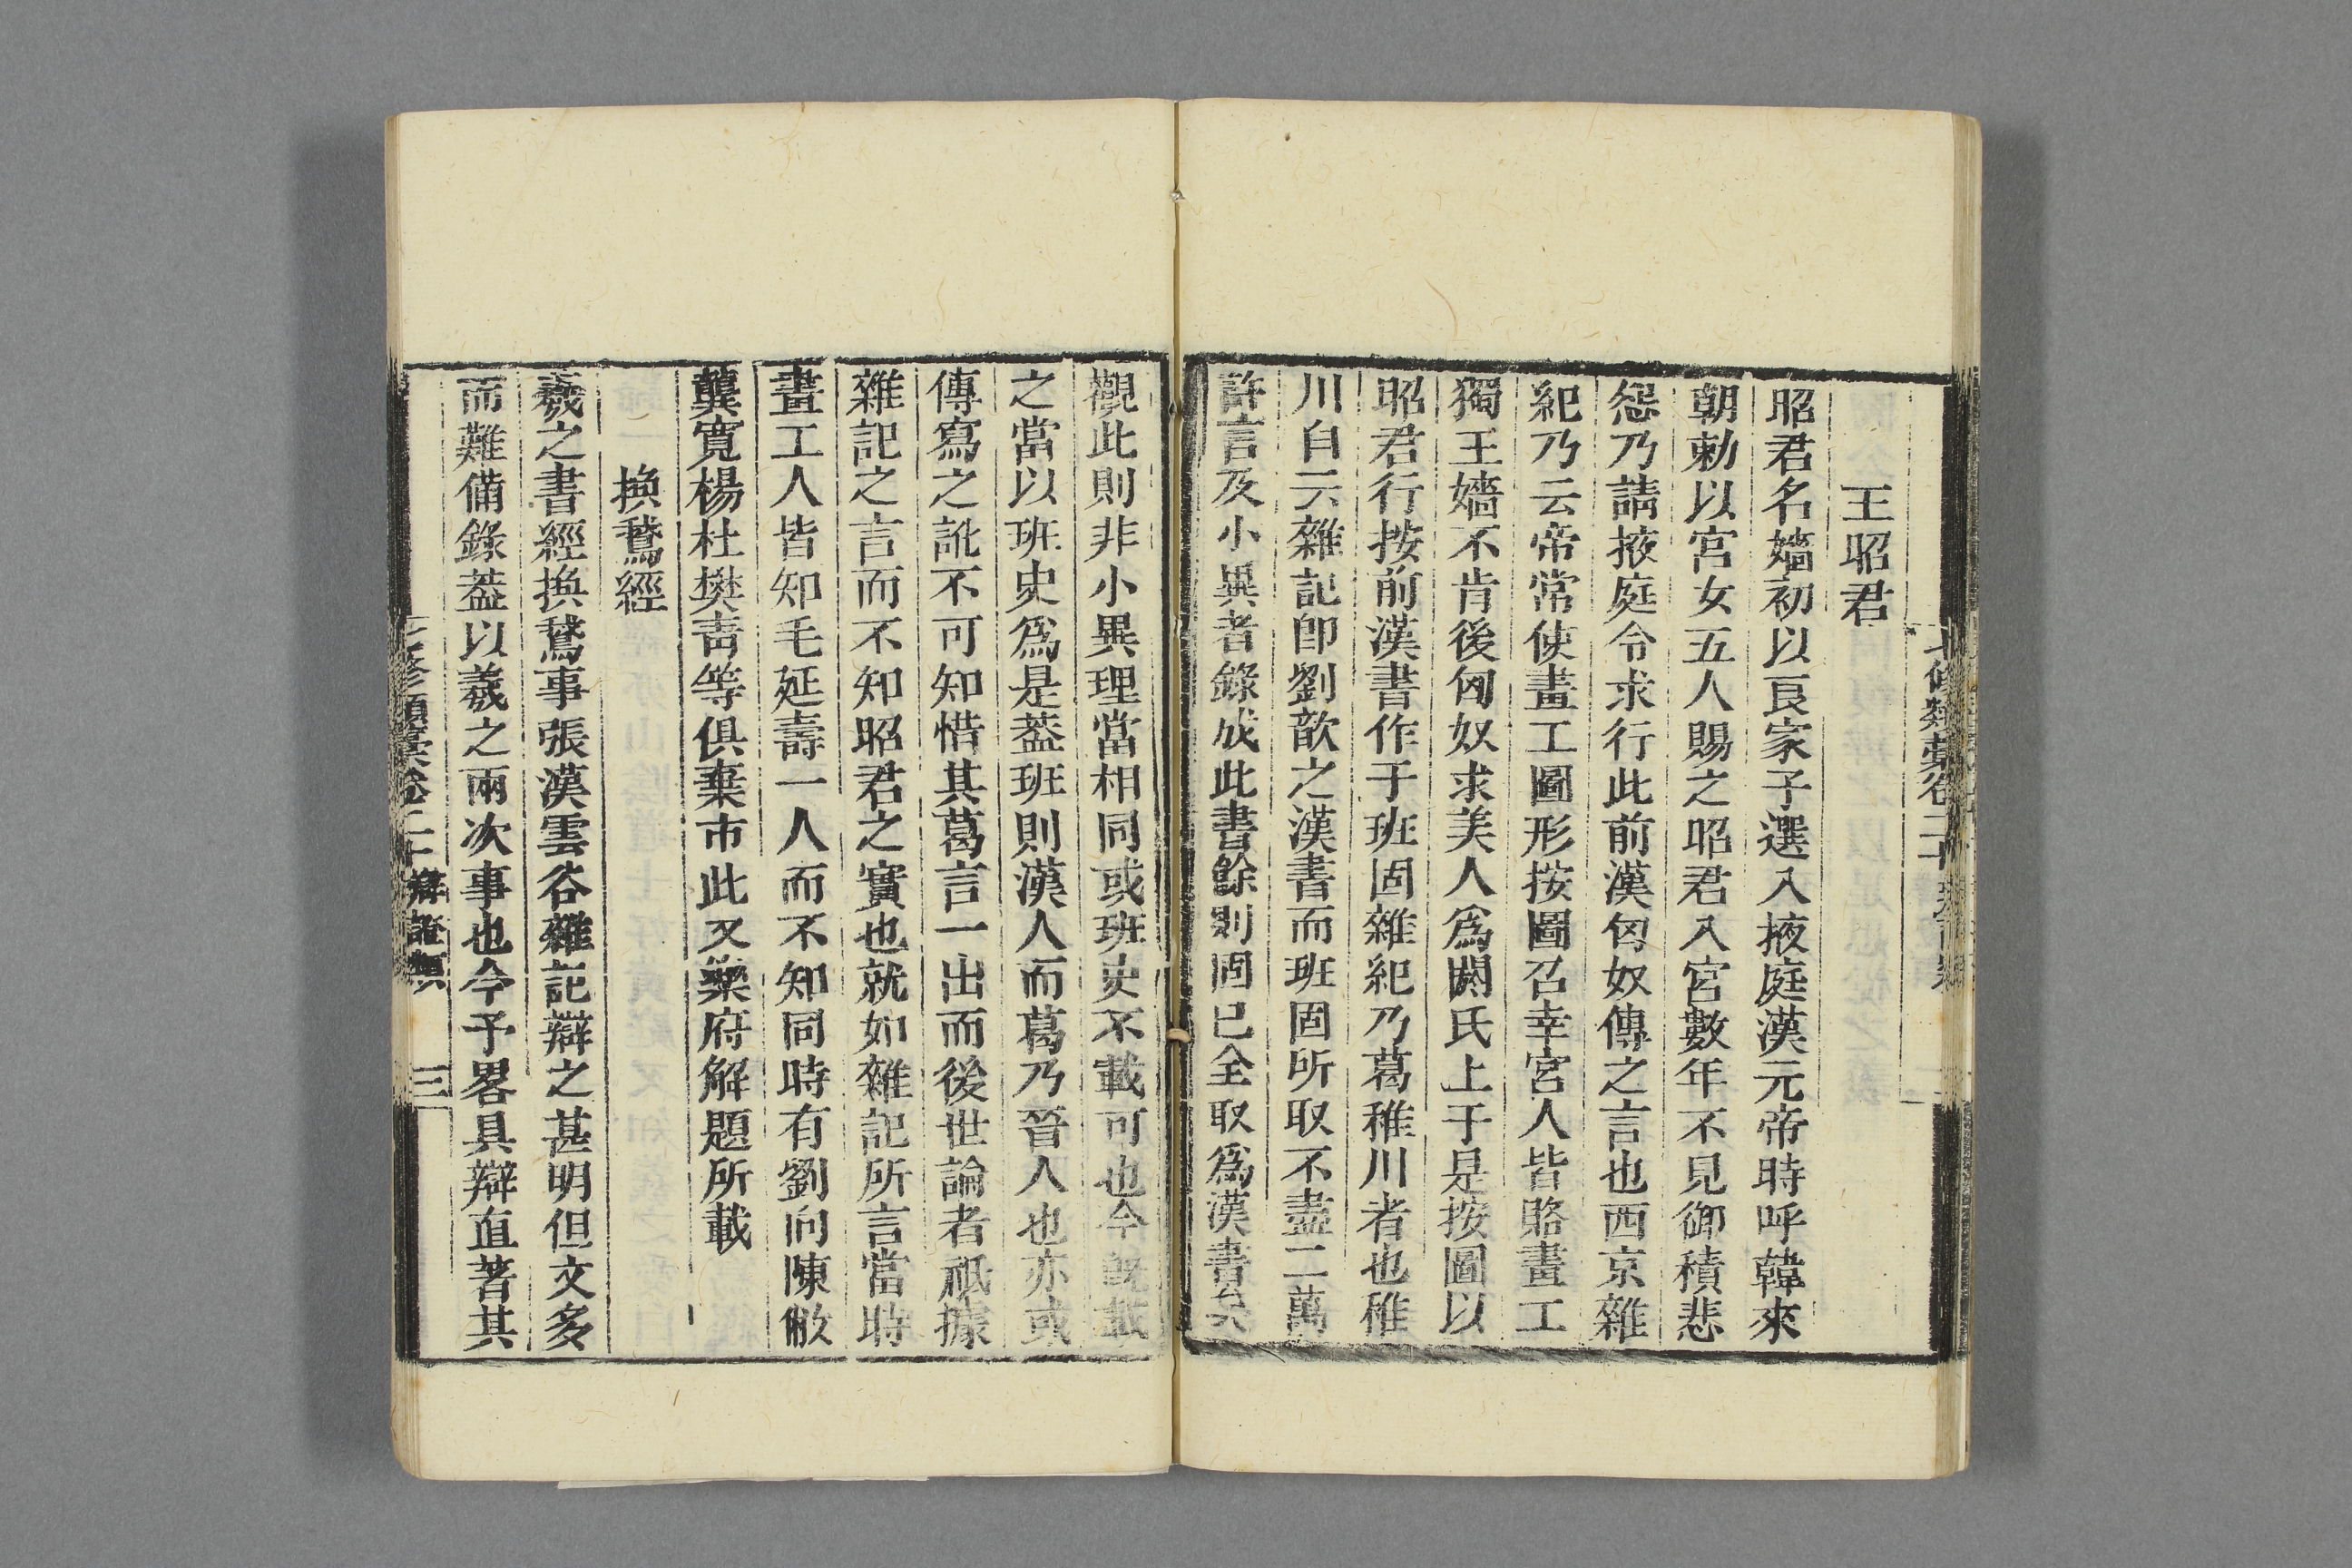 七修類藁卷二十
王昭君
昭君名嬙初以良家子選入掖庭漢元帝時呼韓來
朝勅以宮女五人賜之昭君入宮數年不見御積悲
怨乃請掖庭令求行此前漢匈奴傳之言也西京雜
紀乃云帝常使畫工圖形按圖召幸宮人皆賂畫工
獨王嬙不肯後匈奴求美人爲閼氏上于是按圖以
昭君行按前漢書作于班固雜紀乃葛稚川者也稚
川自云雜記卽劉歆之漢書而班固所取不盡二萬
許言及小異者錄成此書餘則固已全取爲漢書矣
觀此則非小異理當相同或班史不載可也今旣載
之當以班史爲是蓋班則漢人而葛乃晉人也亦或
傳寫之訛不可知惜其葛言一出而後世論者祇據
雜記之言而不知昭君之實也就如雜記所言當時
畫工人皆知毛延壽一人而不知同時有劉向陳敞
龔寬楊杜樊青等俱棄市此又樂府解題所載
換鵞經
羲之書經換鵞事張漢雲谷雜記辯之甚明但文多
而難備錄葢以羲之兩次事也今予畧具辯直著其
七修類藁卷二十 辯證類 三